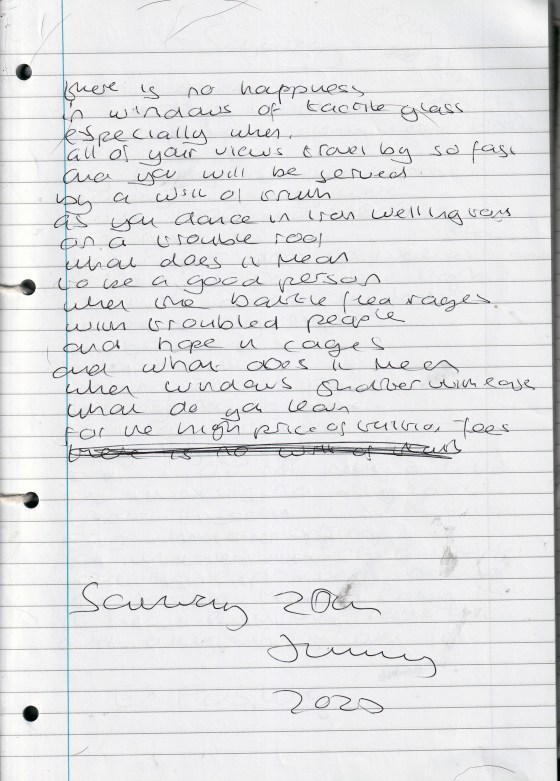 there is no happiness
in windows of tactile glass
especially when
all of your views travel by so fast
and you will be served
by a wall of truth
as you dance in iron wellingtons
on a trouble roof
what does it mean
to be a good person
when the battle flea rages
with troubled people
and hope in cages
and what does it mean
when windows shatter with ease
what do you learn
for the high price of tuition fees
there is no of
20th
2020